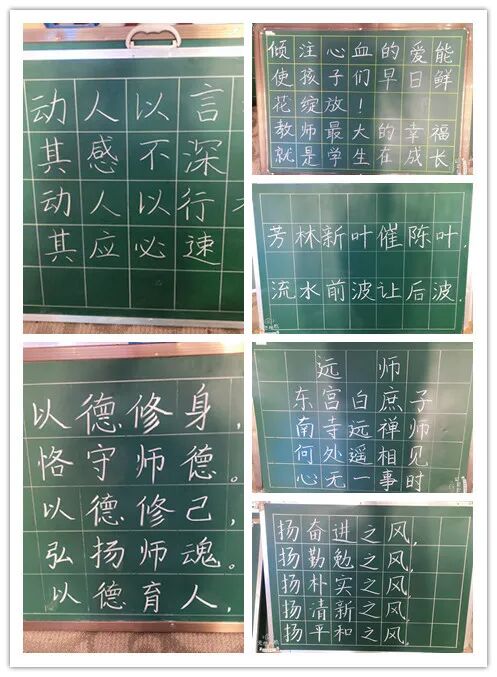 动人以言
其感不深
动人以行
其应必速
以德修身，
恪守师德。
以德修己，
弘扬师魂。
以德育人，
倾注心血的爱能
使孩子们早日鲜
花绽放！
教师最大的幸福
就是学生在成长
芳林新叶催陈叶，
流水前波让后波。
远师
东宫白庶子
南寺远禅师
何外遥相见
心无一事时
扬奋进之风，
扬勤勉之风，
扬朴实之风，
扬清新之风，
扬平和之风。